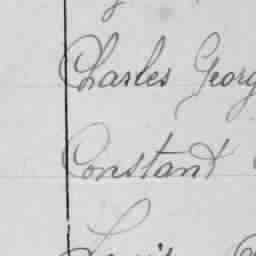 Charles Georg
Constant
Louis